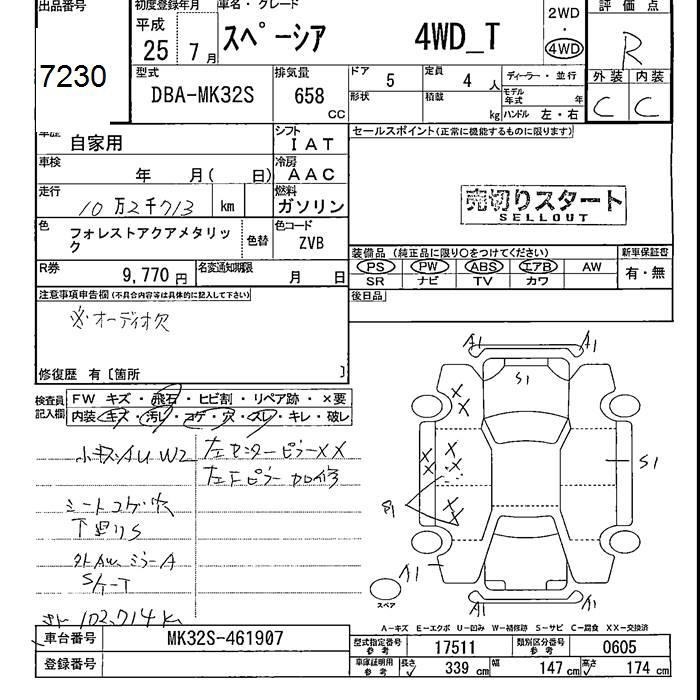 出品番号
7230
初度登録年月
平成
25 7 月
車名・グレード
スペーシア 4WD_T
2WD
・
4WD
評価点
R
外装 内装
C C
型式
DBA-MK32S
排気量
658
CC
ドア 5
定員 4 人
形状
積載 kg
ディーラー・並行
モデル年式 年
ハンドル 左・右
車歴 自家用
シフト
IAT
車検 年 月( 日)
冷房
AAC
走行 10万2千713 km
燃料
ガソリン
色 フォレストアクアメタリック
色替
色コード
ZVB
R券 9,770 円
名変通知期限 月 日
セールスポイント(正常に機能するものに限ります)
売切りスタート
SELLOUT
装備品 (純正品に限り○をつけてください)
新車保証書
PS PW ABS エアB AW
SR ナビ TV カワ
有・無
後日品
注意事項申告欄(不具合内容等は具体的に記入して下さい)
※オーディオ欠
修復歴 有〔箇所 〕
検査員記入欄
FW キズ・飛石・ヒビ割・リペア跡・×要
内装・キズ・汚レ・コゲ・穴・スレ・キレ・破レ
小キズ・AU W2
左センターピラーXX
左Fピラー加修
シートコゲ穴
下廻りS
外 ミラーA
102,714k
A1 A1
S1
X
X
X X
X X
S1
X
X
A1
A1 A1
スペア
A－キズ E－エクボ U－凹み W－補修跡 S－サビ C－腐食 XX－交換済
車台番号 MK32S-461907
登録番号
型式指定番号 参考 17511
類別区分番号 参考 0605
車庫証明用 参考 長さ 339 cm 幅 147 cm 高さ 174 cm